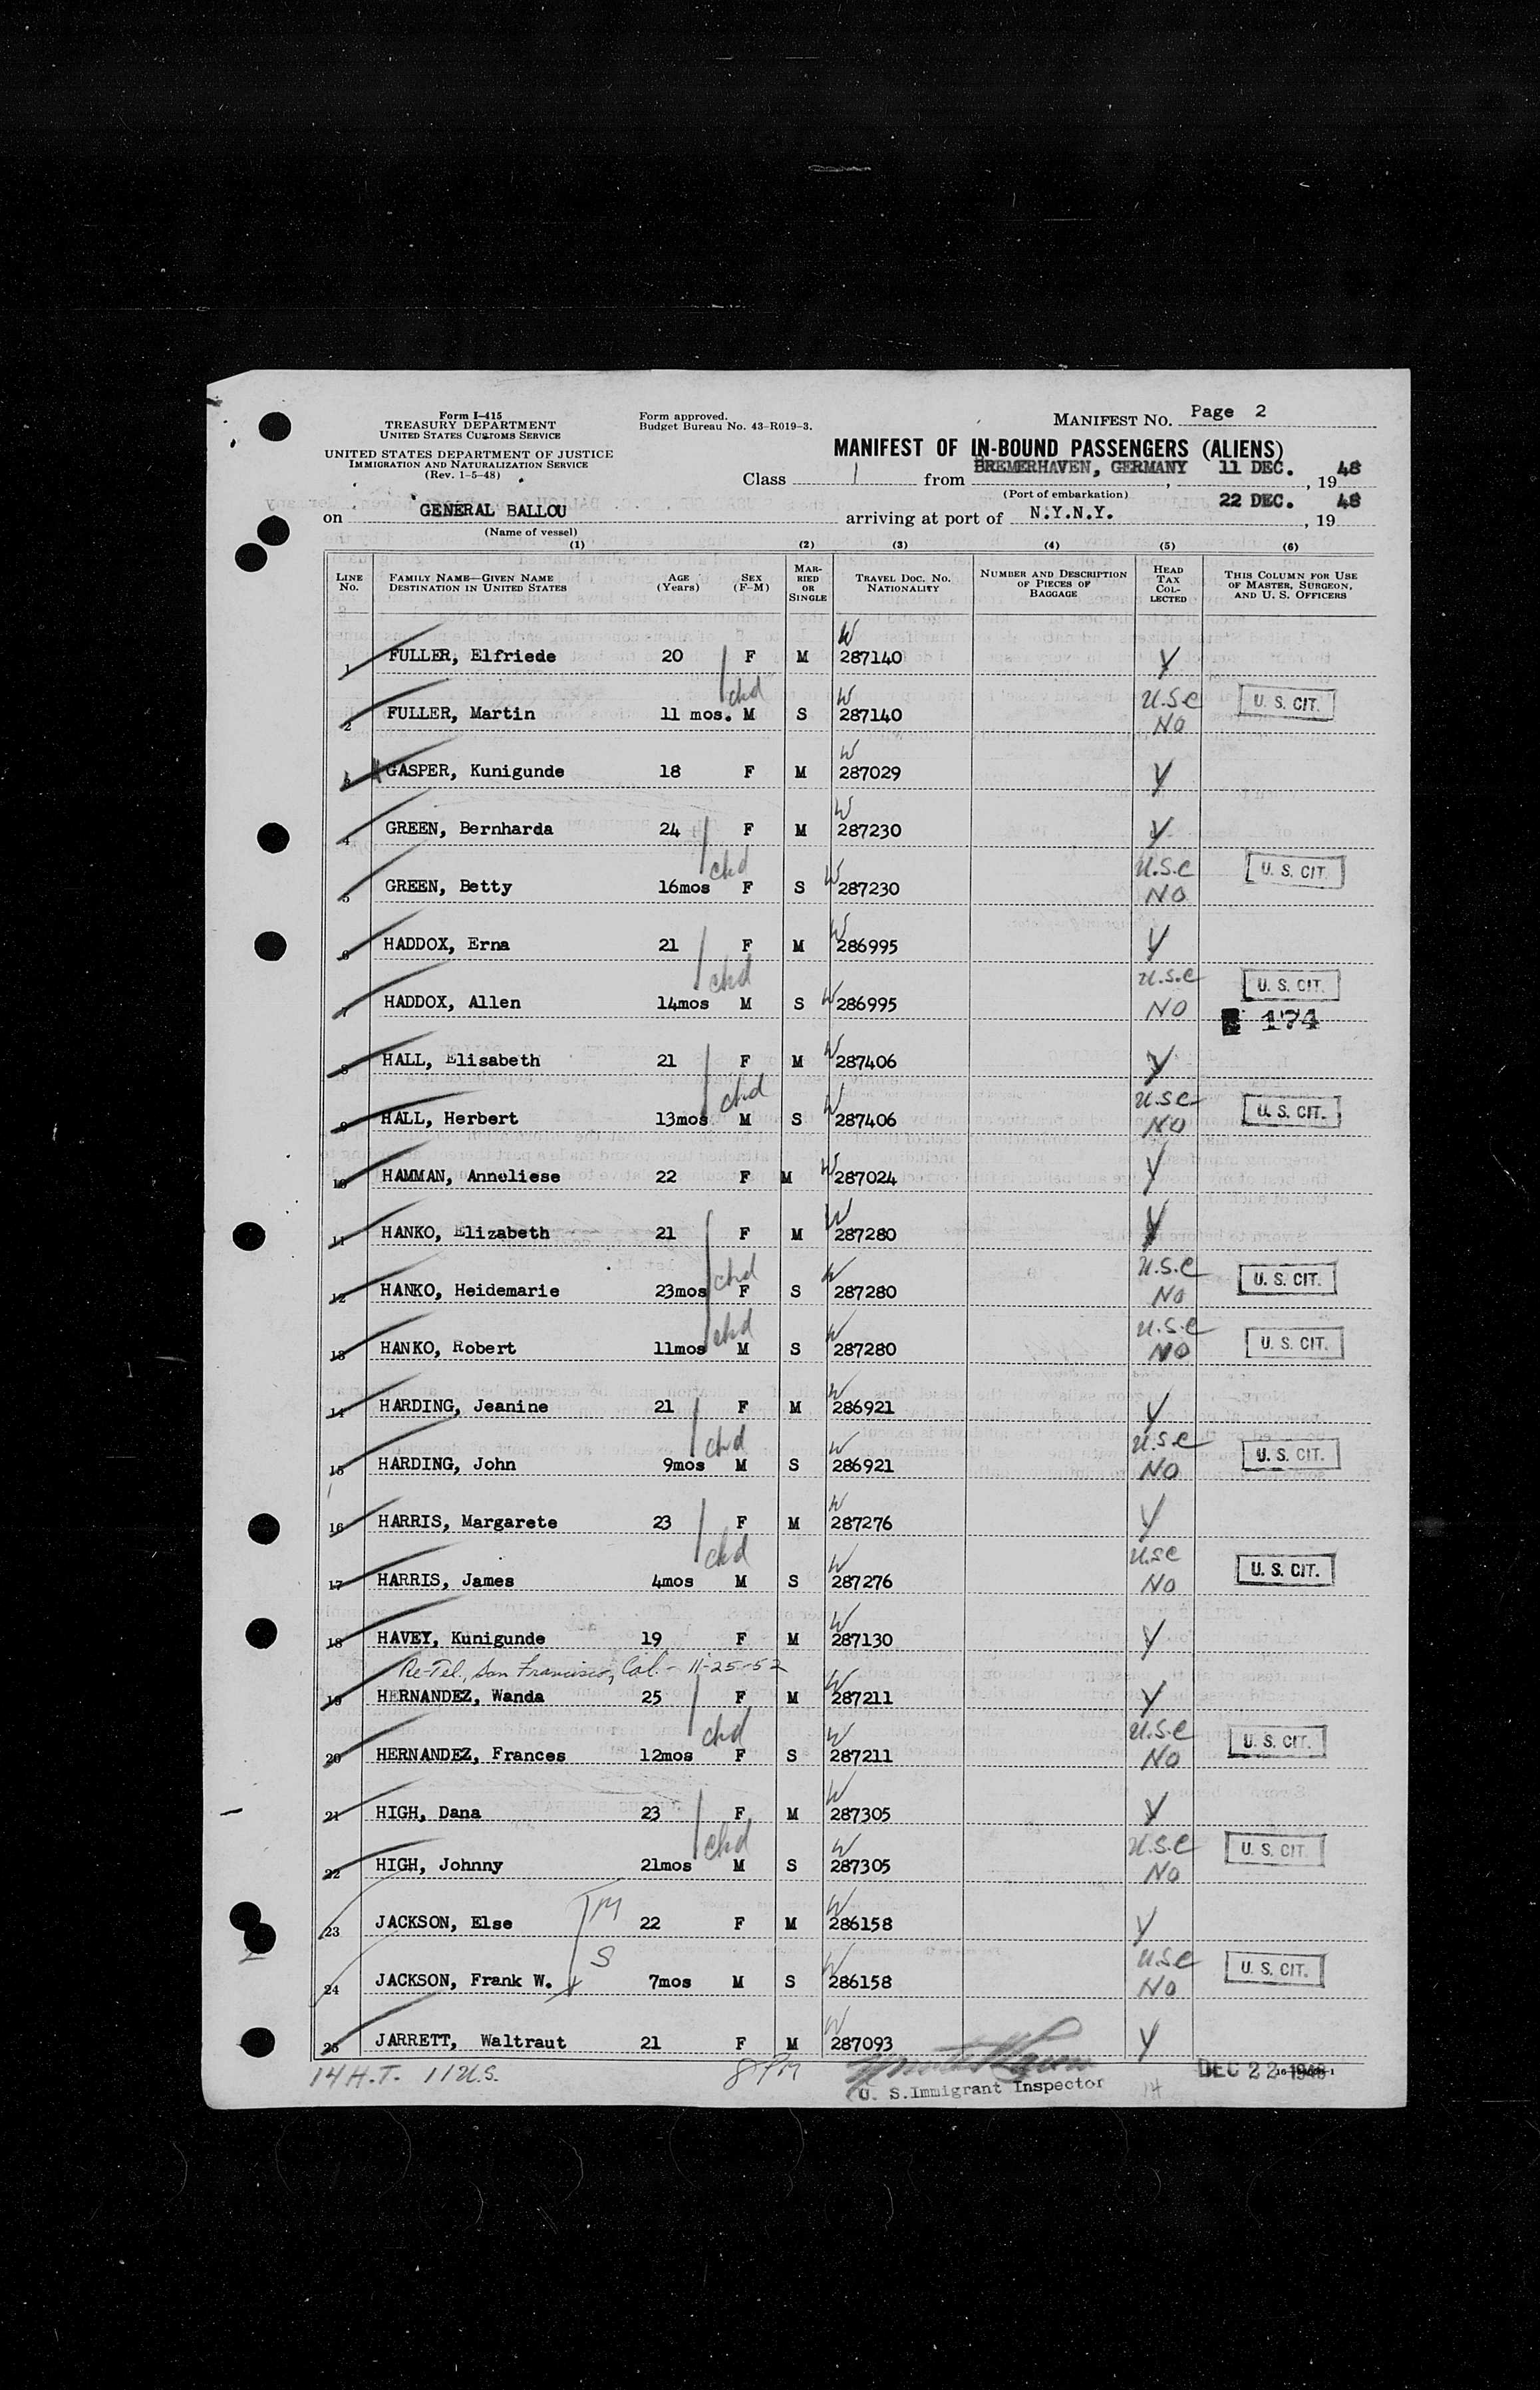 Form I-415
TREASURY DEPARTMENT
UNITED STATES CUSTOMS SERVICE
UNITED STATES DEPARTMENT OF JUSTICE
IMMIGRATION AND NATURALIZATION SERVICE
(Rev. 1-5-48)
Form approved.
Budget Bureau No. 43-R019-3.
MANIFEST NO. Page 2
MANIFEST OF IN-BOUND PASSENGERS (ALIENS)
Class 1 from BREMERHAVEN, GERMANY, 11 DEC., 1948
(Port of embarkation)
on GENERAL BALLOU arriving at port of N.Y.N.Y. 22 DEC., 1948
(Name of vessel)
(1) (2) (3) (4) (5) (6)
LINE NO. FAMILY NAME—GIVEN NAME DESTINATION IN UNITED STATES AGE (YEARS) SEX (F-M) MARRIED OR SINGLE TRAVEL DOC. NO. NATIONALITY NUMBER AND DESCRIPTION OF PIECES OF BAGGAGE HEAD TAX COLLECTED THIS COLUMN FOR USE OF MASTER, SURGEON, AND U. S. OFFICERS
1 FULLER, Elfriede 20 F M W 287140 Y
2 FULLER, Martin 11 mos. chd M S W 287140 U.S.C NO U. S. CIT.
3 GASPER, Kunigunde 18 F M W 287029 Y
4 GREEN, Bernharda 24 F M W 287230 Y
5 GREEN, Betty 16mos chd F S W 287230 U.S.C NO U. S. CIT.
6 HADDOX, Erna 21 F M W 286995 Y
7 HADDOX, Allen 14mos chd M S W 286995 U.S.C NO U. S. CIT.
174
8 HALL, Elisabeth 21 F M W 287406 Y
9 HALL, Herbert 13mos chd M S W 287406 U.S.C NO U. S. CIT.
10 HAMMAN, Anneliese 22 F M W 287024 Y
11 HANKO, Elizabeth 21 F M W 287280 Y
12 HANKO, Heidemarie 23mos chd F S W 287280 U.S.C NO U. S. CIT.
13 HANKO, Robert 11mos chd M S W 287280 U.S.C NO U. S. CIT.
14 HARDING, Jeanine 21 F M W 286921 Y
15 HARDING, John 9mos chd M S W 286921 U.S.C NO U. S. CIT.
16 HARRIS, Margarete 23 F M W 287276 Y
17 HARRIS, James 4mos chd M S W 287276 U.S.C NO U. S. CIT.
18 HAVEY, Kunigunde 19 F M W 287130 Y
Re-Tel, San Francisco, Cal. - 11-25-52
19 HERNANDEZ, Wanda 25 F M W 287211 Y
20 HERNANDEZ, Frances 12mos chd F S W 287211 U.S.C NO U. S. CIT.
21 HIGH, Dana 23 F M W 287305 Y
22 HIGH, Johnny 21mos chd M S W 287305 U.S.C NO U. S. CIT.
23 JACKSON, Else M 22 F M W 286158 Y
24 JACKSON, Frank W. S 7mos M S W 286158 U.S.C NO U. S. CIT.
25 JARRETT, Waltraut 21 F M W 287093 Y
14 H.T. 11 U.S. 8 PM
U. S. Immigrant Inspector 14 DEC 22 1948